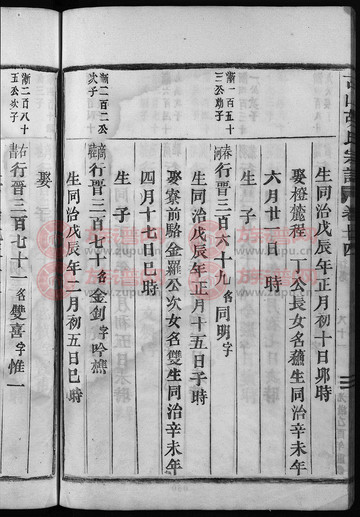 生同治戊辰年正月初十日卯時
娶橙麓程 丁公長女名蘓生同治辛未年
六月廿日時
生 子
漸一百五十
三公幼子
春河 行晉三百六十九名同明字
生同治戊辰年正月十五日子時
娶寮前駱金羅公次女名雙生同治辛未年
四月十七日巳時
生 子
漸二百二公
次子
行晉三百七十名金劍字吟樵
生同治戊辰年二月初五日巳時
娶
漸二百八十
五公次子
右書 行晉三百七十一名雙喜字惟一
族譜网